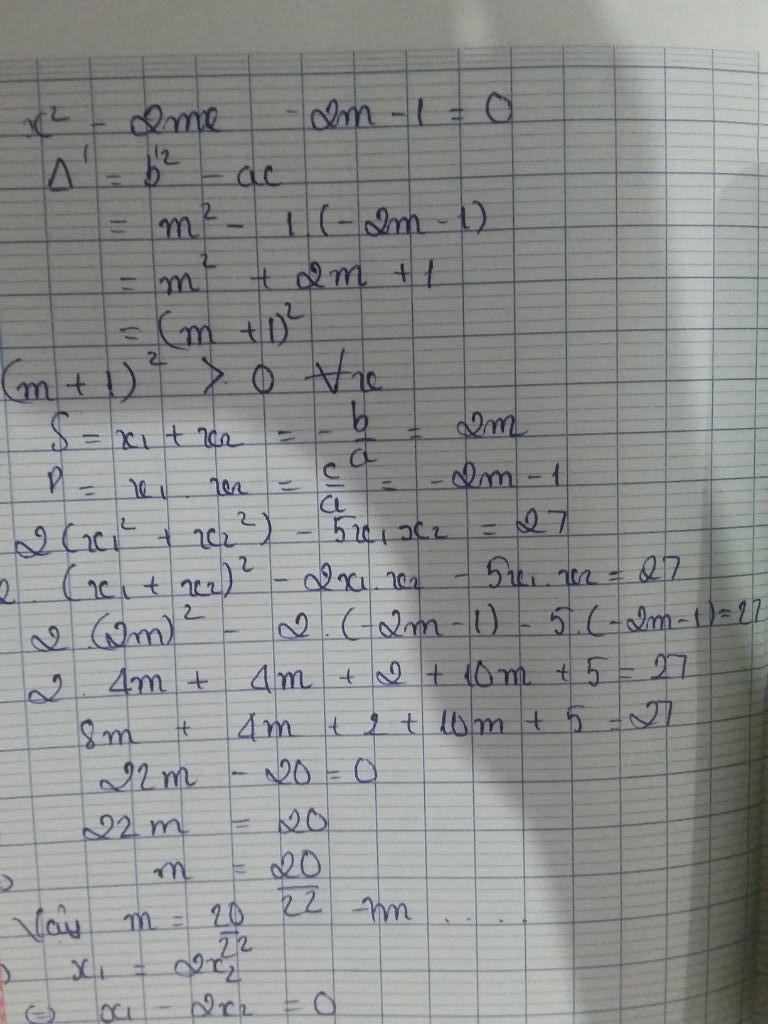 x² - 2mx - 2m - 1 = 0
Δ' = b'² - ac
= m² - 1 (-2m - 1)
= m² + 2m + 1
= (m + 1)²
(m + 1)² > 0 ∀x
S = x₁ + x₂ = -b/a = 2m
P = x₁ . x₂ = c/a = -2m - 1
2(x₁² + x₂²) - 5x₁x₂ = 27
2 (x₁ + x₂)² - 2x₁.x₂ - 5x₁.x₂ = 27
2 (2m)² - 2.(-2m-1) - 5.(-2m-1) = 27
2. 4m + 4m + 2 + 10m + 5 = 27
8m + 4m + 2 + 10m + 5 = 27
22m - 20 = 0
22m = 20
m = 20/22
Vậy m = 20/22 .....
x₁ = 2x₂
⇔ x₁ - 2x₂ = 0